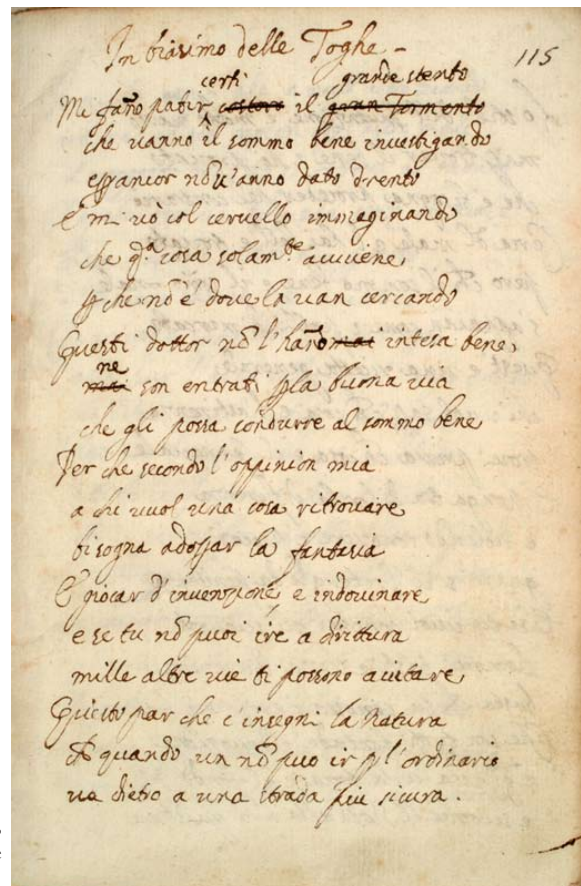 In biasimo delle Toghe -
115
certi grande stento
Mi fano patir costoro il gran Tormento
che vanno il sommo bene investigando
e ancor nō v'anno dato drento
E mi vò col cervello immaginando
che q.a cosa solam.te avviene,
che nō è dove la van cercando
Questi dottor nō l'hano mai intesa bene,
ne
mai son entrati p la buona via
che gli possa condurre al sommo bene
Per che secondo l'oppinion mia
a chi vuol una cosa ritrovare,
bisogna adoprar la fantasia
E giocar d'invenzione, e indovinare,
e se tu nō puoi ire a dirittura
mille altre vie ti possono aiutare,
Questo par che c'insegni la Natura
che quando un nō puo ir p l'ordinario
va dietro a una strada piu sicura.